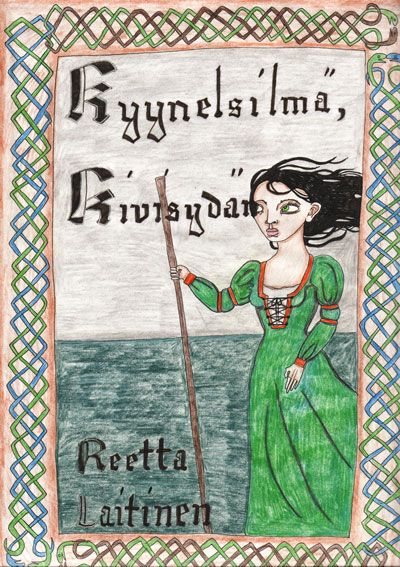 Kyynelsilmä,
Kivisydän
Reetta
Laitinen